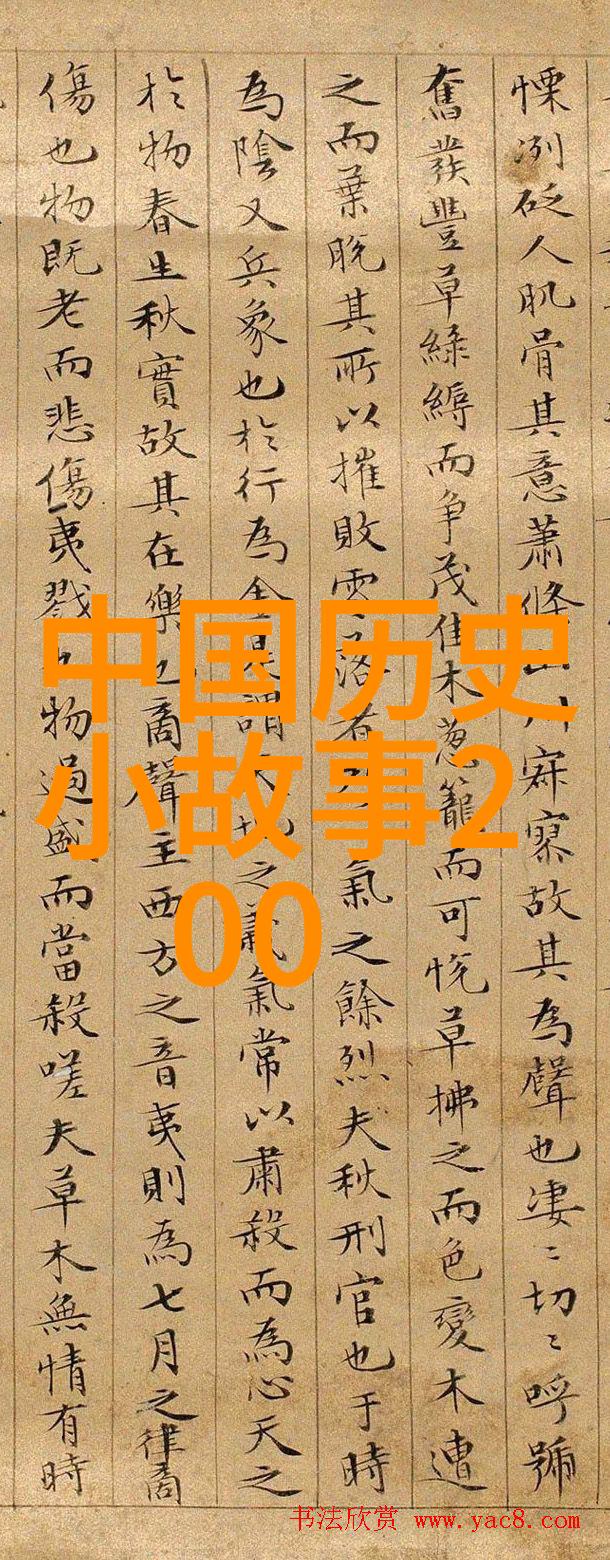 慄冽砭人肌骨其意蕭條山川寂寥故其為聲也淒〻切〻呼號
奮發豐草綠縟而爭茂佳木葱籠而可悅草拂之而色變木遭
之而葉脫其所以摧敗零落者氣之餘烈夫秋刑官也于時
為陰又兵象也於行為金是謂天地之義氣常以肅殺而為心天之
於物春生秋實故其在樂也商聲主西方之音夷則為七月之律商
傷也物既老而悲傷夷戮也物過盛而當殺嗟夫草木無情有時
中国历史
小故事2
00
书法欣赏 www.yac8.com